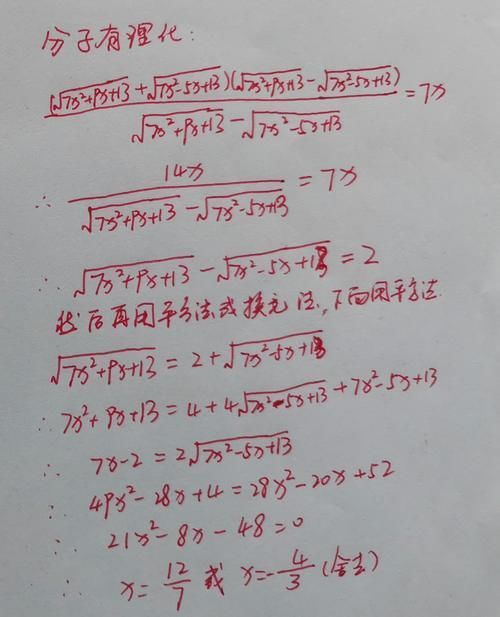 分子有理化:
(√7x²+9x+13 + √7x²-5x+13)(√7x²+9x+13 - √7x²-5x+13) / √7x²+9x+13 - √7x²-5x+13 = 7x
∴ 14x / √7x²+9x+13 - √7x²-5x+13 = 7x
∴ √7x²+9x+13 - √7x²-5x+13 = 2
然后再用平方法或换元法,下面用平方法
√7x²+9x+13 = 2 + √7x²-5x+13
∴ 7x²+9x+13 = 4 + 4√7x²-5x+13 + 7x²-5x+13
∴ 7x-2 = 2√7x²-5x+13
∴ 49x²-28x+4 = 28x²-20x+52
∴ 21x²-8x-48=0
∴ x= 12/7 或 x=-4/3 (舍去)